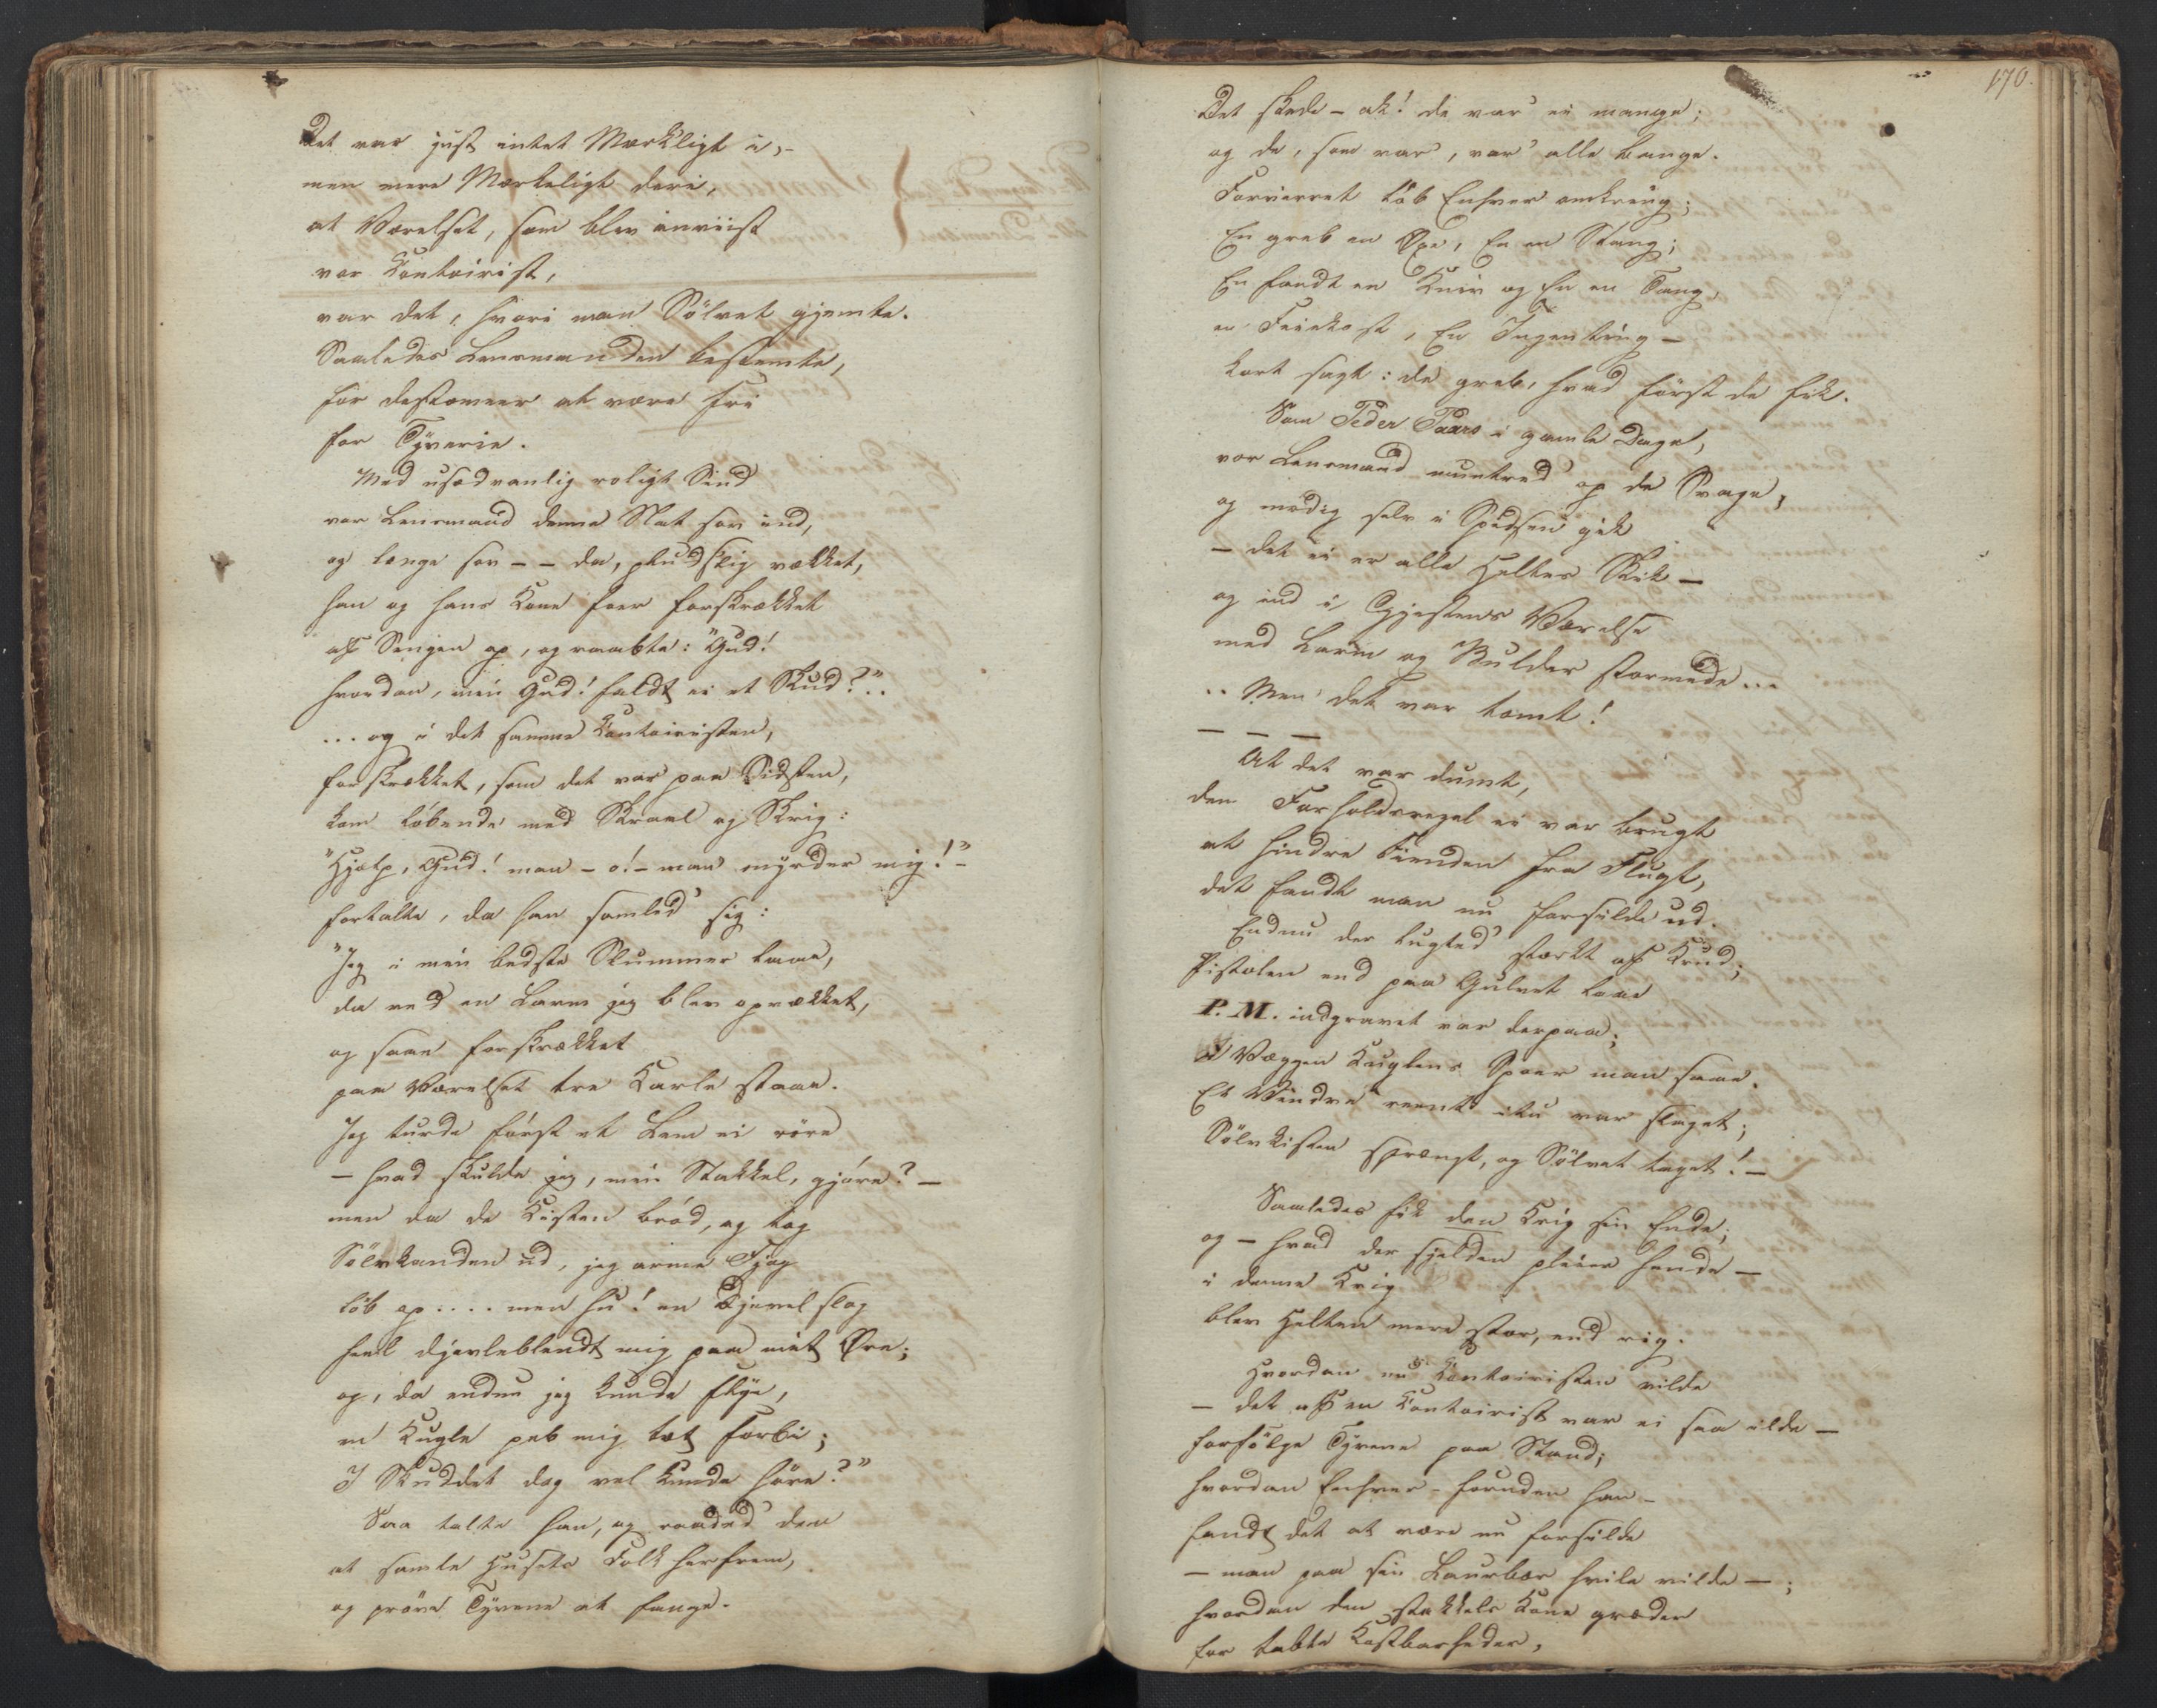 Det var just intet Mærkligt i,-
men mere Mærkeligt deri,
at Værelset, som blev anviist
vor Contoirist,
var det, hvori man Sölvet gjemte.
Saaledes Lensmanden bestemte,
for destomeer at være fri
for Tÿverie.
Med usædvanlig roligt Sind
vor Lensmand denne Nat sov ind,
og længe sov - - da, pludslig vækket,
han og hans Kone foer forskrækket
af Sengen op, og raabte: "Gud!
hvordan, min Gud! faldt ei et Skud?"..
... og i det samme Contoiristen,
forskrækket, som det var paa Sidsten,
kom löbende med Skraal og Skrig:
"Hjælp, Gud! man - o! - man mÿrder mig!"-
fortalte, da han samled' sig:
"Jeg i min bedste Slummer laae,
da ved en Larm jeg blev opvækket,
og saae forskrækket
paa Værelset tre Karle staae.
Jeg turde först et Lem ei röre
- hvad skulde jeg, min Stakkel, gjöre? -
men da de Kisten bröd, og tog
Sölvkanden ud, jeg arme Tjog
löb op .... men hu! en Djevel slog
heel djevleblendt mig paa mit Øre;
og, da endnu jeg kunde flÿe,
en Kugle peb mig tæt forbi;
I Skuddet dog vel kunde höre?"
Saa talte han, og raaded' dem
at samle Husets Folk herfrem,
og pröve Tÿvene at fange.
170.
Det skede - ak! de var' ei mange;
og de, som var', var' alle bange.
Forvirret löb Enhver omkring;
En greb en Øxe, En en Stang;
En fandt en Kniv og En en Tang,
en Feiekost, En Ingenting -
kort sagt: de greb, hvad först de fik.
Som Peder Paars i gamle Dage,
vor Lensmand muntred' op de Svage,
og modig selv i Spidsen gik
- det ei er alle Heltes Skik -
og ind i Gjestens Værelse
med Larm og Bulder stormede ...
.. Men det var tomt!
- - -
At det var dumt,
den Forholdsregel ei var brugt
at hindre Fienden fra Flugt,
det fandt man nu forsilde ud.
Endnu der lugted' stærkt af Krud;
Pistolen end paa Gulvet laae
P. M. indgravet var derpaa;
I Væggen Kuglens Spoer man saae.
Et Vindve reent itu var slaget;
Sölvkisten sprængt, og Sölvet taget! -
Saaledes fik den Krig sin Ende;
og - hvad der sjelden pleier hende -
i denne Krig
blev Helten mere stor, end rig.
Hvordan nu Contoiristen vilde
- det af en Contoirist var ei saa ilde -
forfölge Tÿvene paa Stand;
hvordan Enhver - foruden han -
fandt det at være nu forsilde
- man paa sin Laurbær hvile vilde - ;
hvordan den stakkels Kone græder
for tabte Kostbarheder,